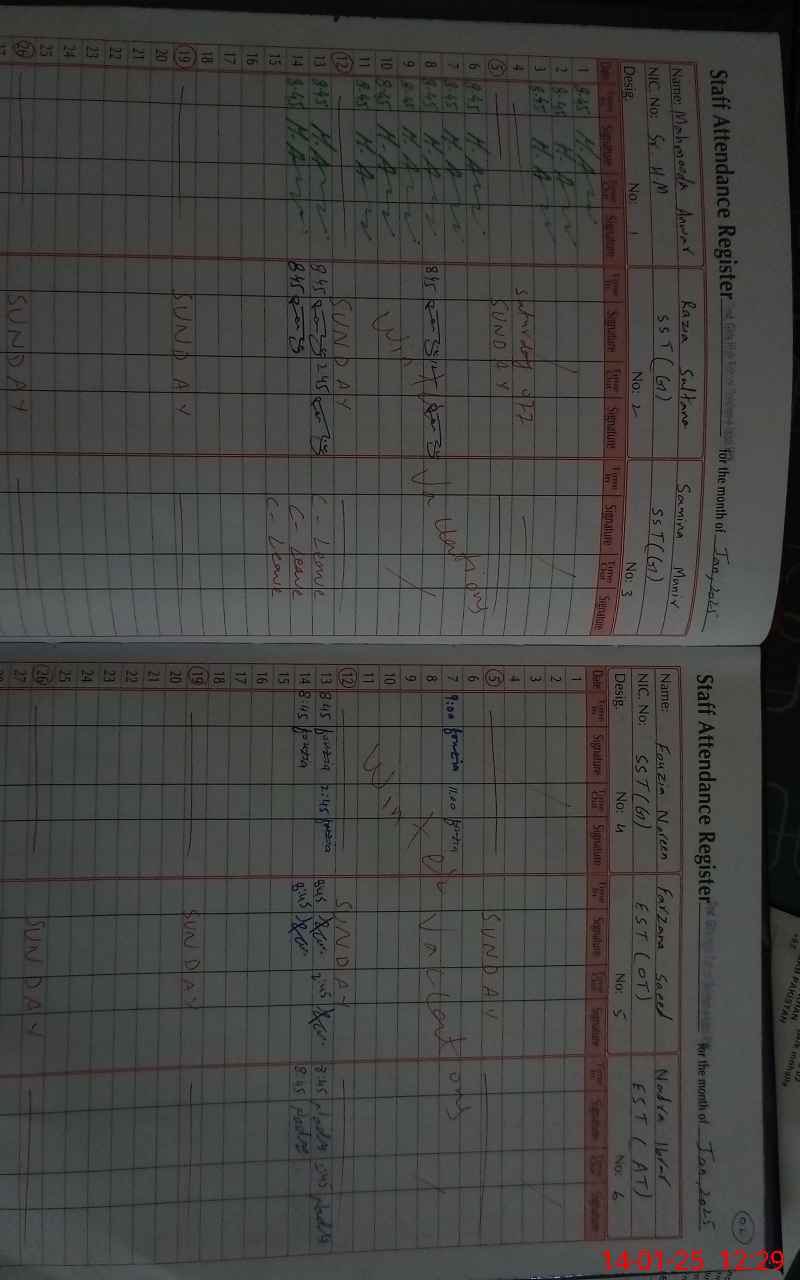 Staff Attendance Register for the month of Jan, 2025
Name: Mahmooda Anwar Razia Sultana Samina Munir
NIC. No: Sr. HM SST (G) SST (G)
Desig. No: 1 No: 2 No: 3
Date Time In Signature Time Out Signature Time In Signature Time Out Signature Time In Signature Time Out Signature
1 8:45
2 8:45
3 8:45
4 Saturday off
5 SUNDAY
6 8:45
7 8:45
8 8:45 8:45
9 8:45
10 8:45
11 8:45
Winter Vacations
12 SUNDAY
13 8:45 8:45 2:45 C-Leave
14 8:45 8:45 C-Leave
15 C-Leave
16
17
18
19 SUNDAY
20
21
22
23
24
25
26 SUNDAY
Staff Attendance Register for the month of Jan, 2025
02
Name: Fouzia Nareen Farzana Saeed Nadra Ibrar
NIC. No: SST (G) EST (OT) EST (AT)
Desig. No: 4 No: 5 No: 6
Date Time In Signature Time Out Signature Time In Signature Time Out Signature Time In Signature Time Out Signature
1
2
3
4
5 SUNDAY
6
7 9:00 fouzia 11:00 fouzia
8
9
10
11
Winter Vacations
12 SUNDAY
13 8:45 fouzia 2:45 fouzia 8:45 2:45 8:45 Nadra 2:45 Nadra
14 8:45 fouzia 8:45 8:45 Nadra
15
16
17
18
19 SUNDAY
20
21
22
23
24
25
26 SUNDAY
27
PAKISTAN
14-01-25 12:29